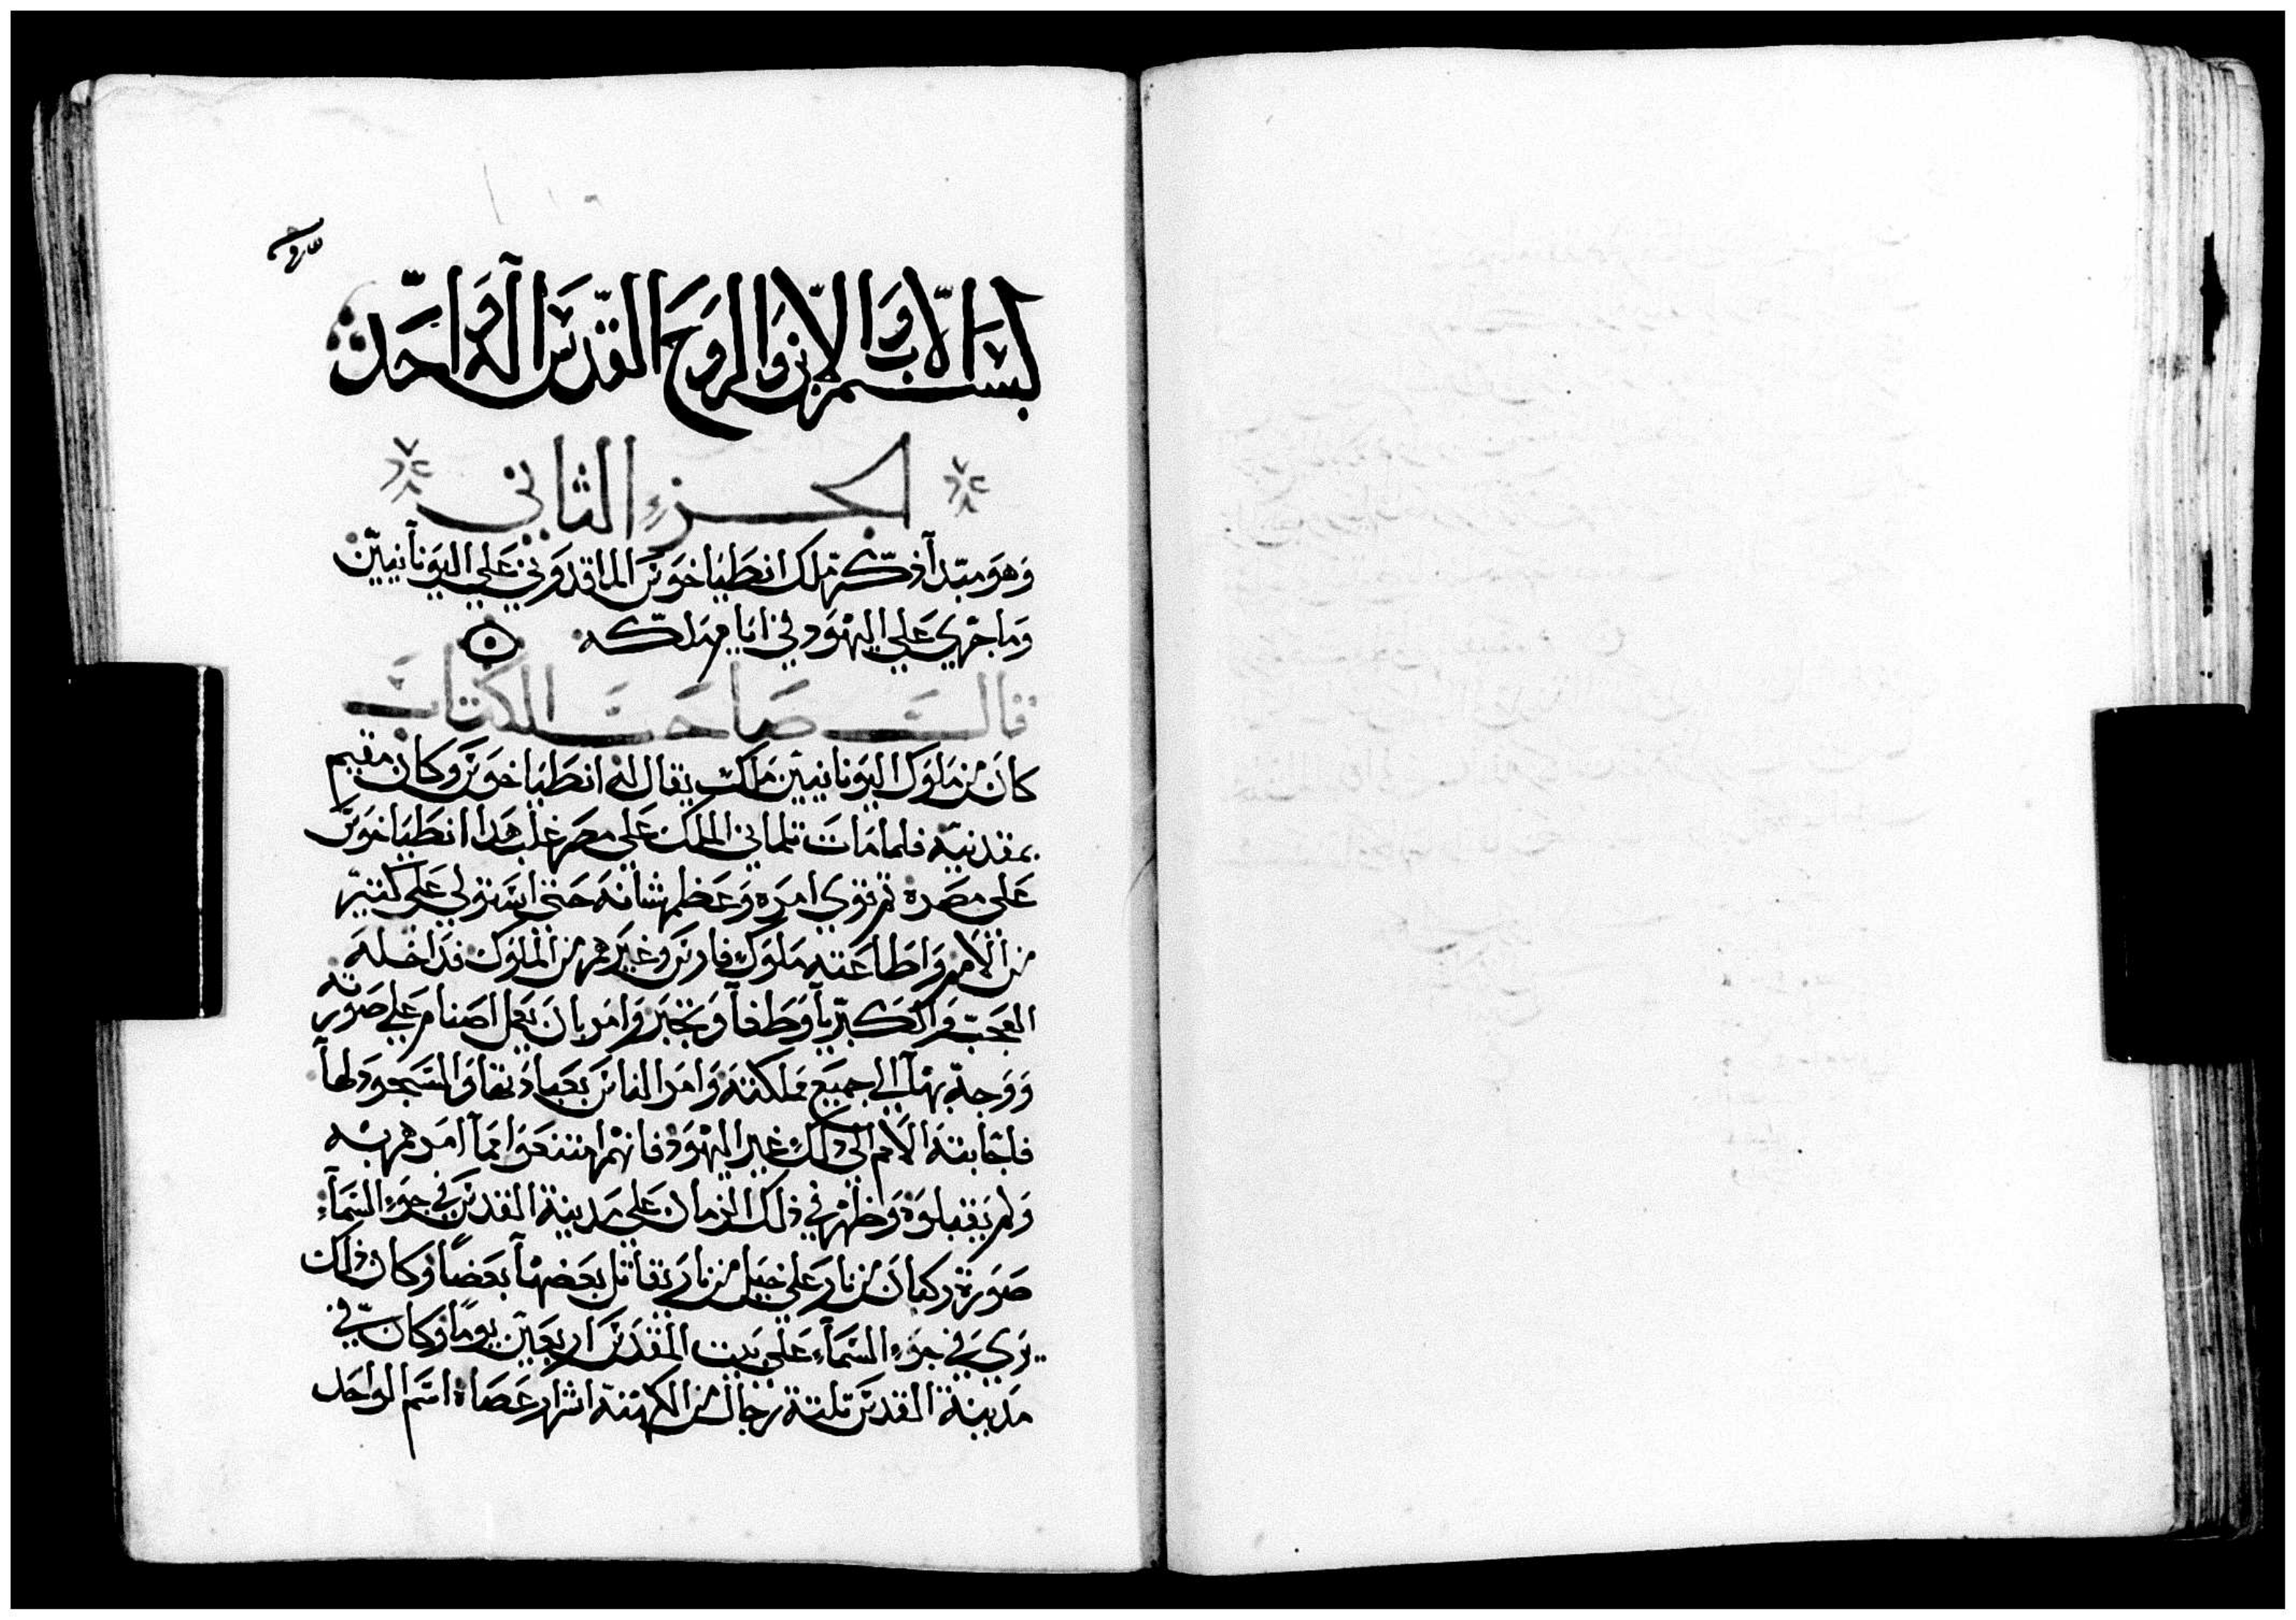 بسم الاب والابن والروح القدس اله واحد
الجزء الثاني
وهو مبدا ذكر تملك انطياخوس الماقدوني علي اليونانيين
وما جري علي اليهود في ايام تملكه
قال صاحب الكتاب
كان من ملوك اليونانيين ملك يقال له انطياخوس وكان مقيم
بمقدنية فلما مات تلماني الملك علي مصر غلب هدا انطياخوس
علي مصره تم قوي امره وعظم شانه حتي استولي علي كتير
من الامم واطاعته ملوك فارس وغيرهم من الملوك فداخله
العجب والكبريا وطغا وتجبر وامر بان يعمل اصنام علي صورته
ووجه بها الي جميع مملكته وامر الناس بعبادتها والسجود لها
فاجابته الامم الي دلك غير اليهود فانهم امتنعوا مما امرهم به
ولم يقبلوه وظهر في دلك الزمان علي مدينة القدس في جوء السماء
صورة ركبان من نار علي خيل من نار يقاتل بعضها بعضا وكان دلك
يري في جوء السماء علي بيت المقدس اربعين يوما وكان في
مدينة القدس تلتة رجال من الكهنة اشرار عصاة اسم الواحد